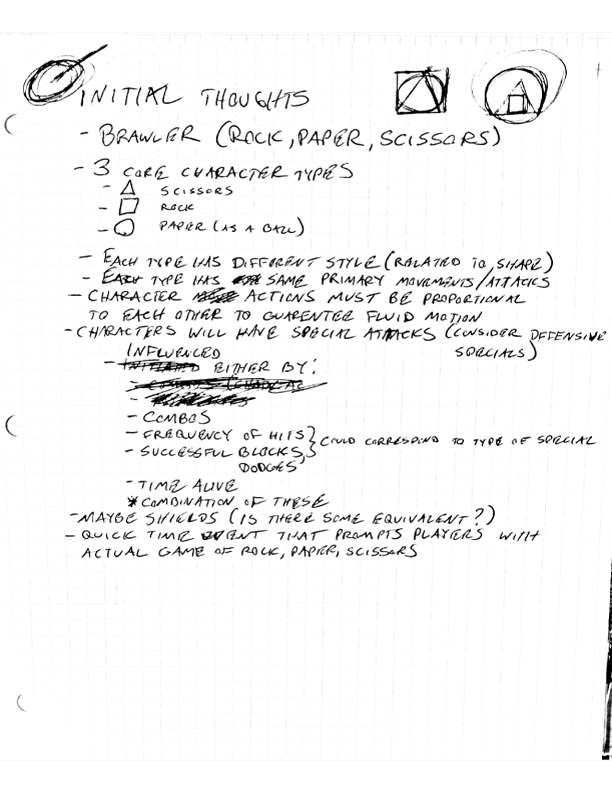 INITIAL THOUGHTS
- BRAWLER (ROCK, PAPER, SCISSORS)
- 3 CORE CHARACTER TYPES
- △ SCISSORS
- □ ROCK
- ○ PAPER (AS A BALL)
- EACH TYPE HAS DIFFERENT STYLE (RELATED TO SHAPE)
- EACH TYPE HAS SAME PRIMARY MOVEMENTS/ATTACKS
- CHARACTER ACTIONS MUST BE PROPORTIONAL
TO EACH OTHER TO GUARENTEE FLUID MOTION
- CHARACTERS WILL HAVE SPECIAL ATTACKS (CONSIDER DEFENSIVE
SPECIALS)
INFLUENCED
- EITHER BY:
- COMBOS
- FREQUENCY OF HITS
- SUCCESSFUL BLOCKS,
DODGES
} COULD CORRESPOND TO TYPE OF SPECIAL
- TIME ALIVE
* COMBINATION OF THESE
- MAYBE SHIELDS (IS THERE SOME EQUIVALENT?)
- QUICK TIME EVENT THAT PROMPTS PLAYERS WITH
ACTUAL GAME OF ROCK, PAPER, SCISSORS